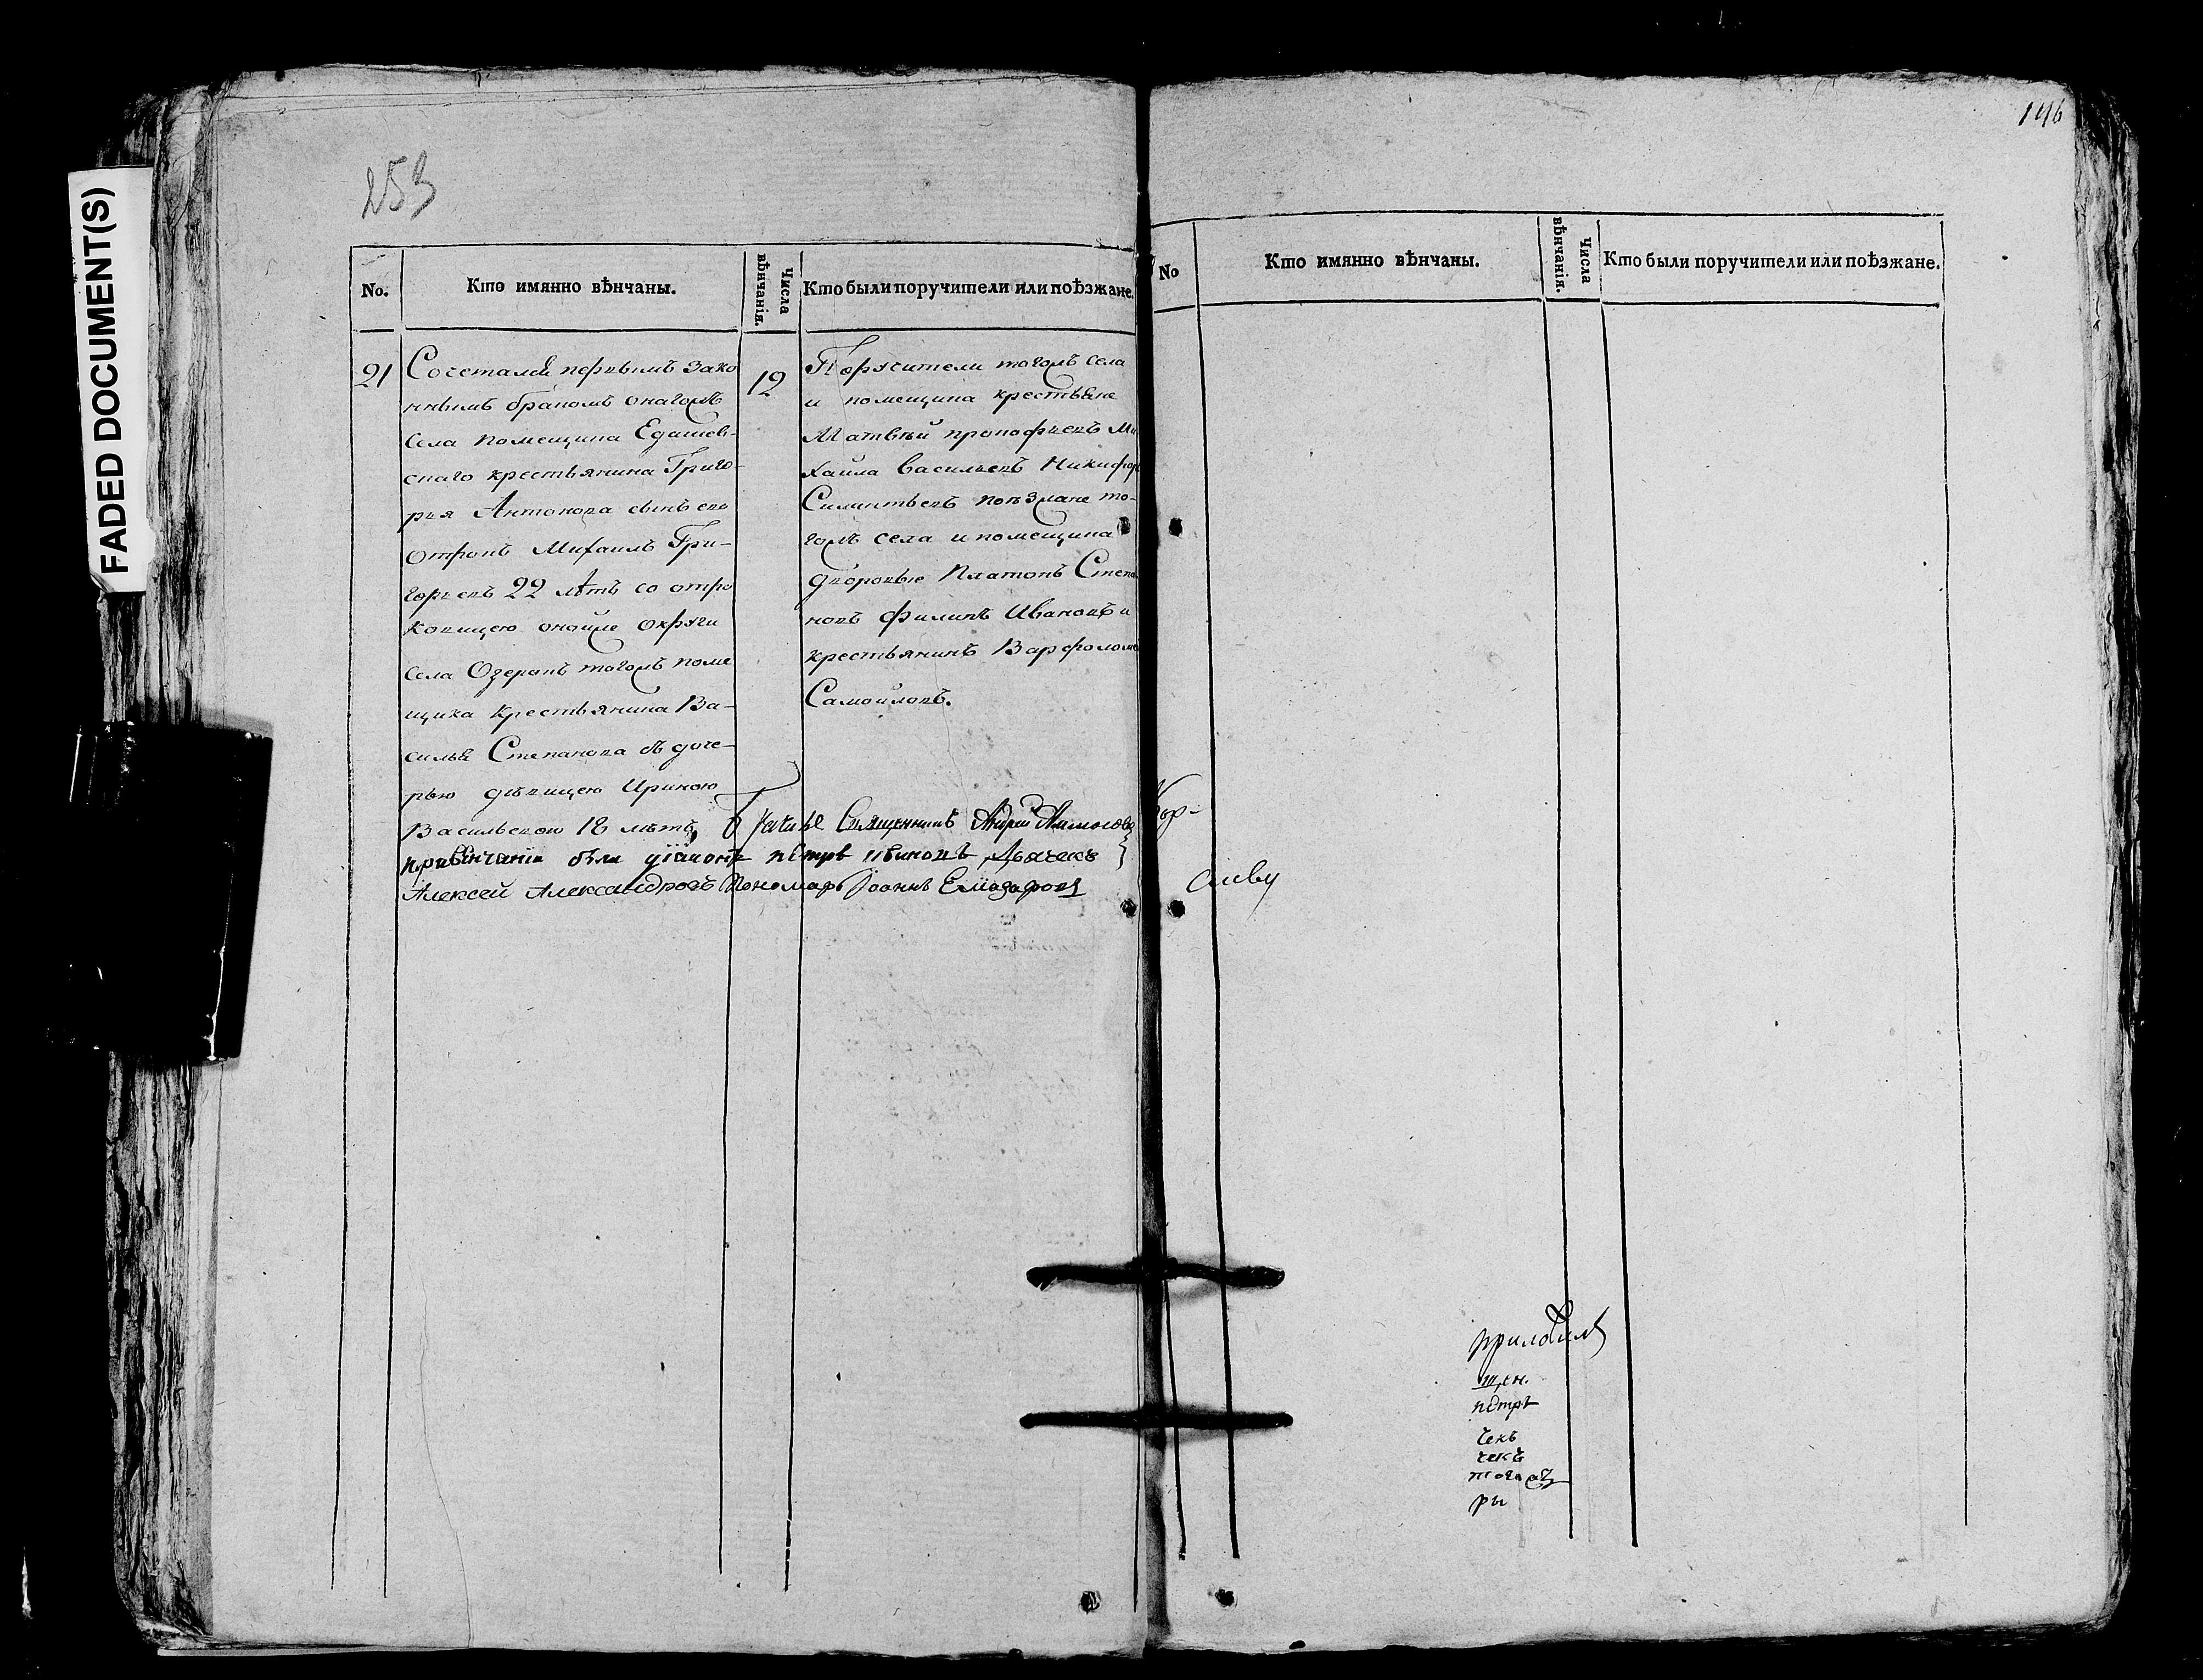 FADED DOCUMENT(S)
253
No.
Кто имянно вѣнчаны.
Числа вѣнчанія.
Кто были поручители или поѣзжане.
21
Сочетался первымъ зако
ннымъ бракомъ онагожъ
села помещика
скаго крестьянина Григо-
рія Антонова сынъ ево
отрокъ Михаилъ Гри-
горьевъ 22 лѣтъ со отро
ковицею онойже округи
села Озерокъ тогожъ поме
щика крестьянина Ва-
силья Степанова съ доче-
рью девицею Ириною
Васильевою 18 летъ,
12
Поручители тогожъ села
и помещика крестьяне
Матвѣй Прокофьевъ Ми
хайла Васильевъ Никифор
Силантьевъ поезжане то-
гожъ села и помещика
дворовые Платонъ Степа
новъ Филипъ Ивановъ и
крестьянинъ Варфоломе
Самойловъ.
Священникъ Андрей
при венчаніи были діаконъ Петръ Ивановъ Дьячекъ
Алексей Александровъ Пономарь Іоаннъ
196
No
Кто имянно вѣнчаны.
Числа вѣнчанія.
Кто были поручители или поѣзжане.
петръ
чекъ
чекъ
ры